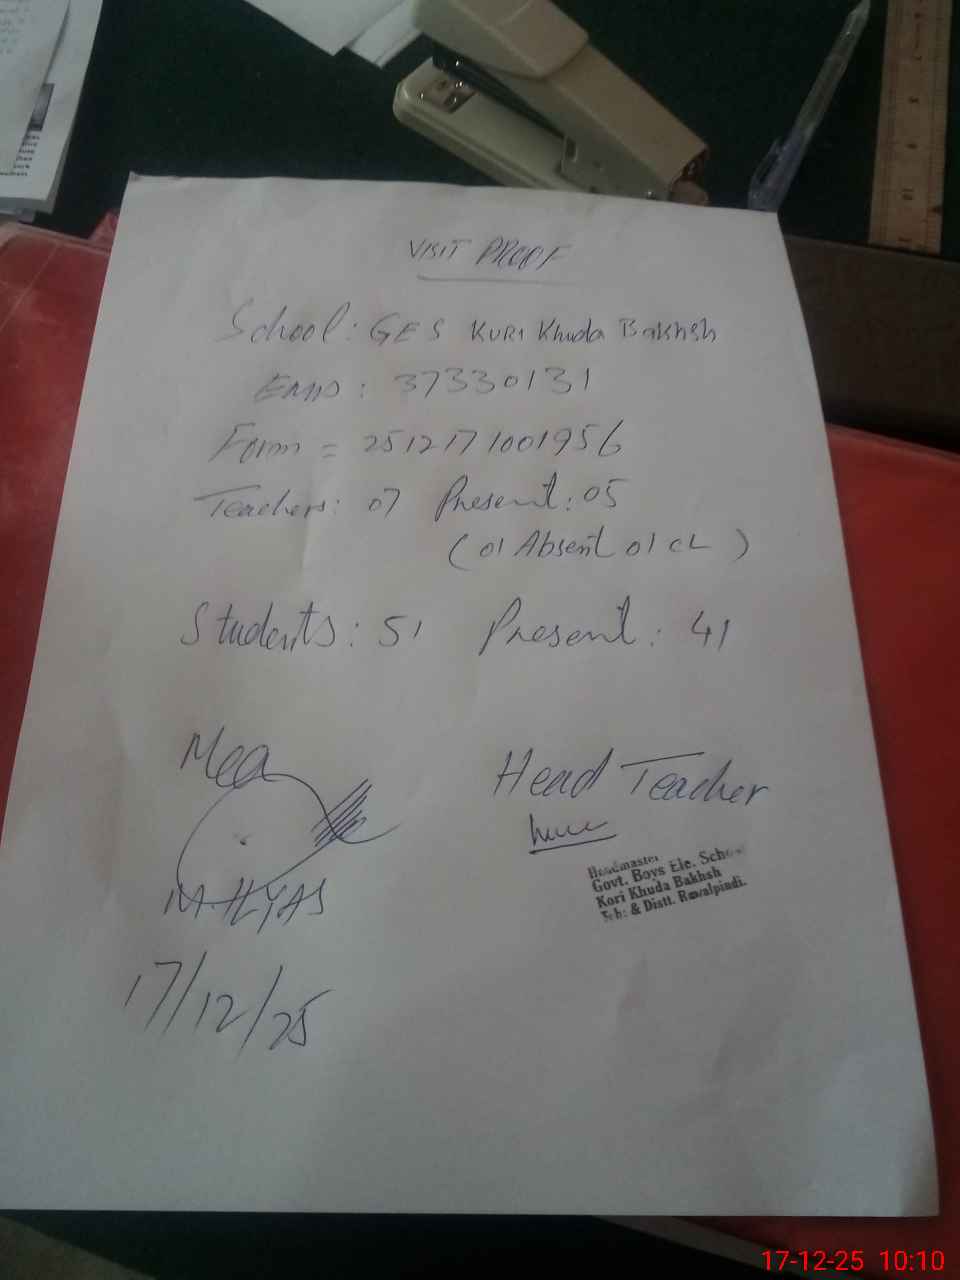 VISIT PROOF
School: GES KURI Khuda Bakhsh
EMIS: 37330131
Form = 2512171001956
Teachers: 07 Present: 05
(01 Absent 01 CL)
Students: 51 Present: 41
Mea
M. ILYAS
17/12/25
Head Teacher
Headmaster
Govt. Boys Ele. School
Kori Khuda Bakhsh
Teh: & Distt. Rawalpindi.
17-12-25 10:10